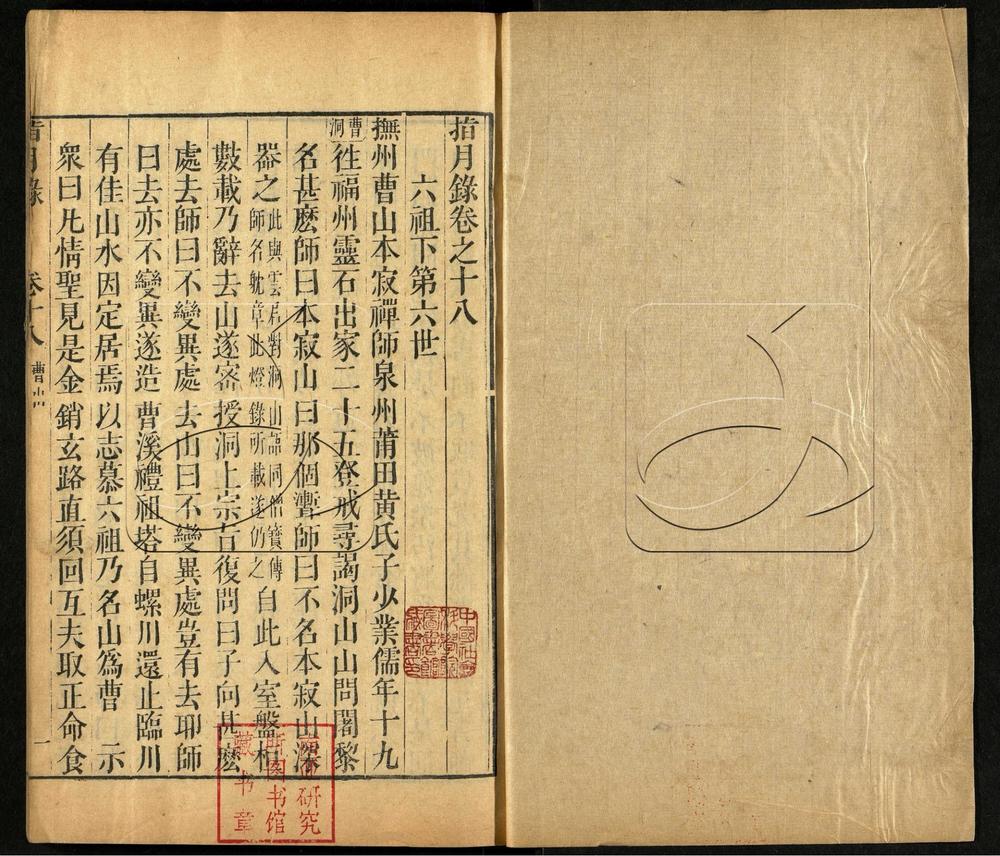 指月錄卷之十八
六祖下第六世
撫州曹山本寂禪師泉州莆田黄氏子少業儒年十九
曹洞
徃福州靈石出家二十五登戒尋謁洞山山問闍黎
名甚麽師曰本寂山曰那個聻師曰不名本寂山深
器之
此與雲居對洞山語同僧寶傳
師名躭章此燈錄所載遂仍之
自此入室盤桓
數載乃辭去山遂密授洞上宗旨復問曰子向甚麽
處去師曰不變異處去山曰不變異處豈有去耶師
曰去亦不變異遂造曹溪禮祖塔自螺川還止臨川
有佳山水因定居焉以志慕六祖乃名山爲曹 示
衆曰凡情聖見是金鎖玄路直須回互夫取正命食
指月錄 卷十八 曹山 一
中國社會
科學院
圖書館
藏書印
研究
所图书馆
藏书章